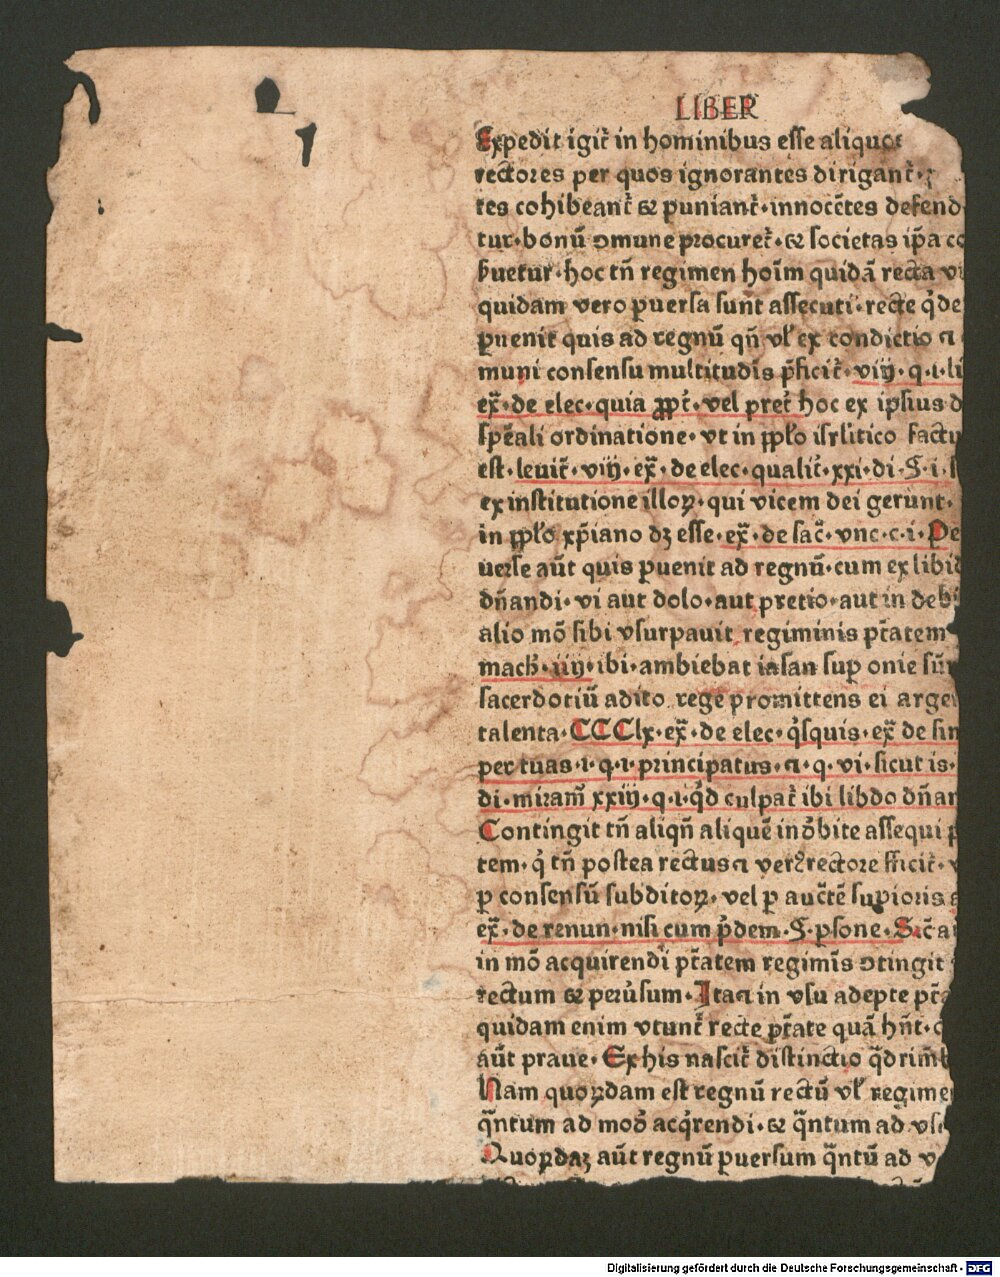 LIBER
Expedit igit̄ in hominibus esse aliquos
rectores per quos ignorantes dirigant̄·
tes cohibeant̄ ⁊ puniant̄·innocētes defend
tur·bonū ꝯmune procuret̄·⁊ societas ip̄a co
ꝑuetur·hoc tn̄ regimen hoīm quidā recta vi
quidam vero ꝑuersa sunt assecuti·recte q̇de
ꝑuenit quis ad regnū qn̄ vl̓ ex condictio a
muni consensu multitudīs p̄ficit̄·viij·q·i·li
ex̄·de elec·quia ꝓpt̄·vel pret̄ hoc ex ipsius d
sp̄eali ordinatione·vt in ꝓpl̓o isrl̓itico factu
est·leuit̄·viij·ex̄·de elec·qualit̄·xxi·di·§·i·
ex institutione illoꝝ·qui vicem dei gerunt·
in ꝓpl̓o xp̄iano dꝫ esse·ex̄·de sac̄·vnc·c·i·Pe
uerse aūt quis ꝑuenit ad regnū·cum ex libid
dn̄andi·vi aut dolo·aut pretio·aut in debi
alio mō sibi vsurpauit regiminis pt̄atem
mach̄·iiij·ibi·ambiebat iasan sup onie
sacerdotiū adito rege promittens ei argen
talenta·CCClx·ex̄·de elec·q̇squis·ex̄ de sin
per tuas·i·q·i·principatus·a·q·vi·sicut is·
di·miram̄ xxiij·q·i·q̇d culpat̄ ibi libdo dn̄an
Contingit tn̄ aliqn̄ aliquē inōbite assequi p
tem·q̇ tn̄ postea rectus a ver᷑rectore fficit̄·v
ꝑ consensū subditoꝝ·vel ꝑ auct̄ē supioris
ex̄·de renun·nisi cum p̄dem·§·ꝑsone·Sic̄
in mō acquirendi pt̄atem regimīs ꝯtingit
rectum ⁊ peru̓sum·Ita a in vsu adepte pt̄a
quidam enim vtunt̄ recte pt̄ate quā hn̄t·
aūt praue·Ex his nascit̄ distinctio q̄d rim̄b
Nam quoꝝdam est regnū rectū vl̓ regimen
q̄ntum ad modō acq̇rendi·⁊ q̄ntum ad vs
Quoꝝdaꝫ aūt regnū ꝑuersum q̄ntū ad v
Digitalisierung gefördert durch die Deutsche Forschungsgemeinschaft - DFG